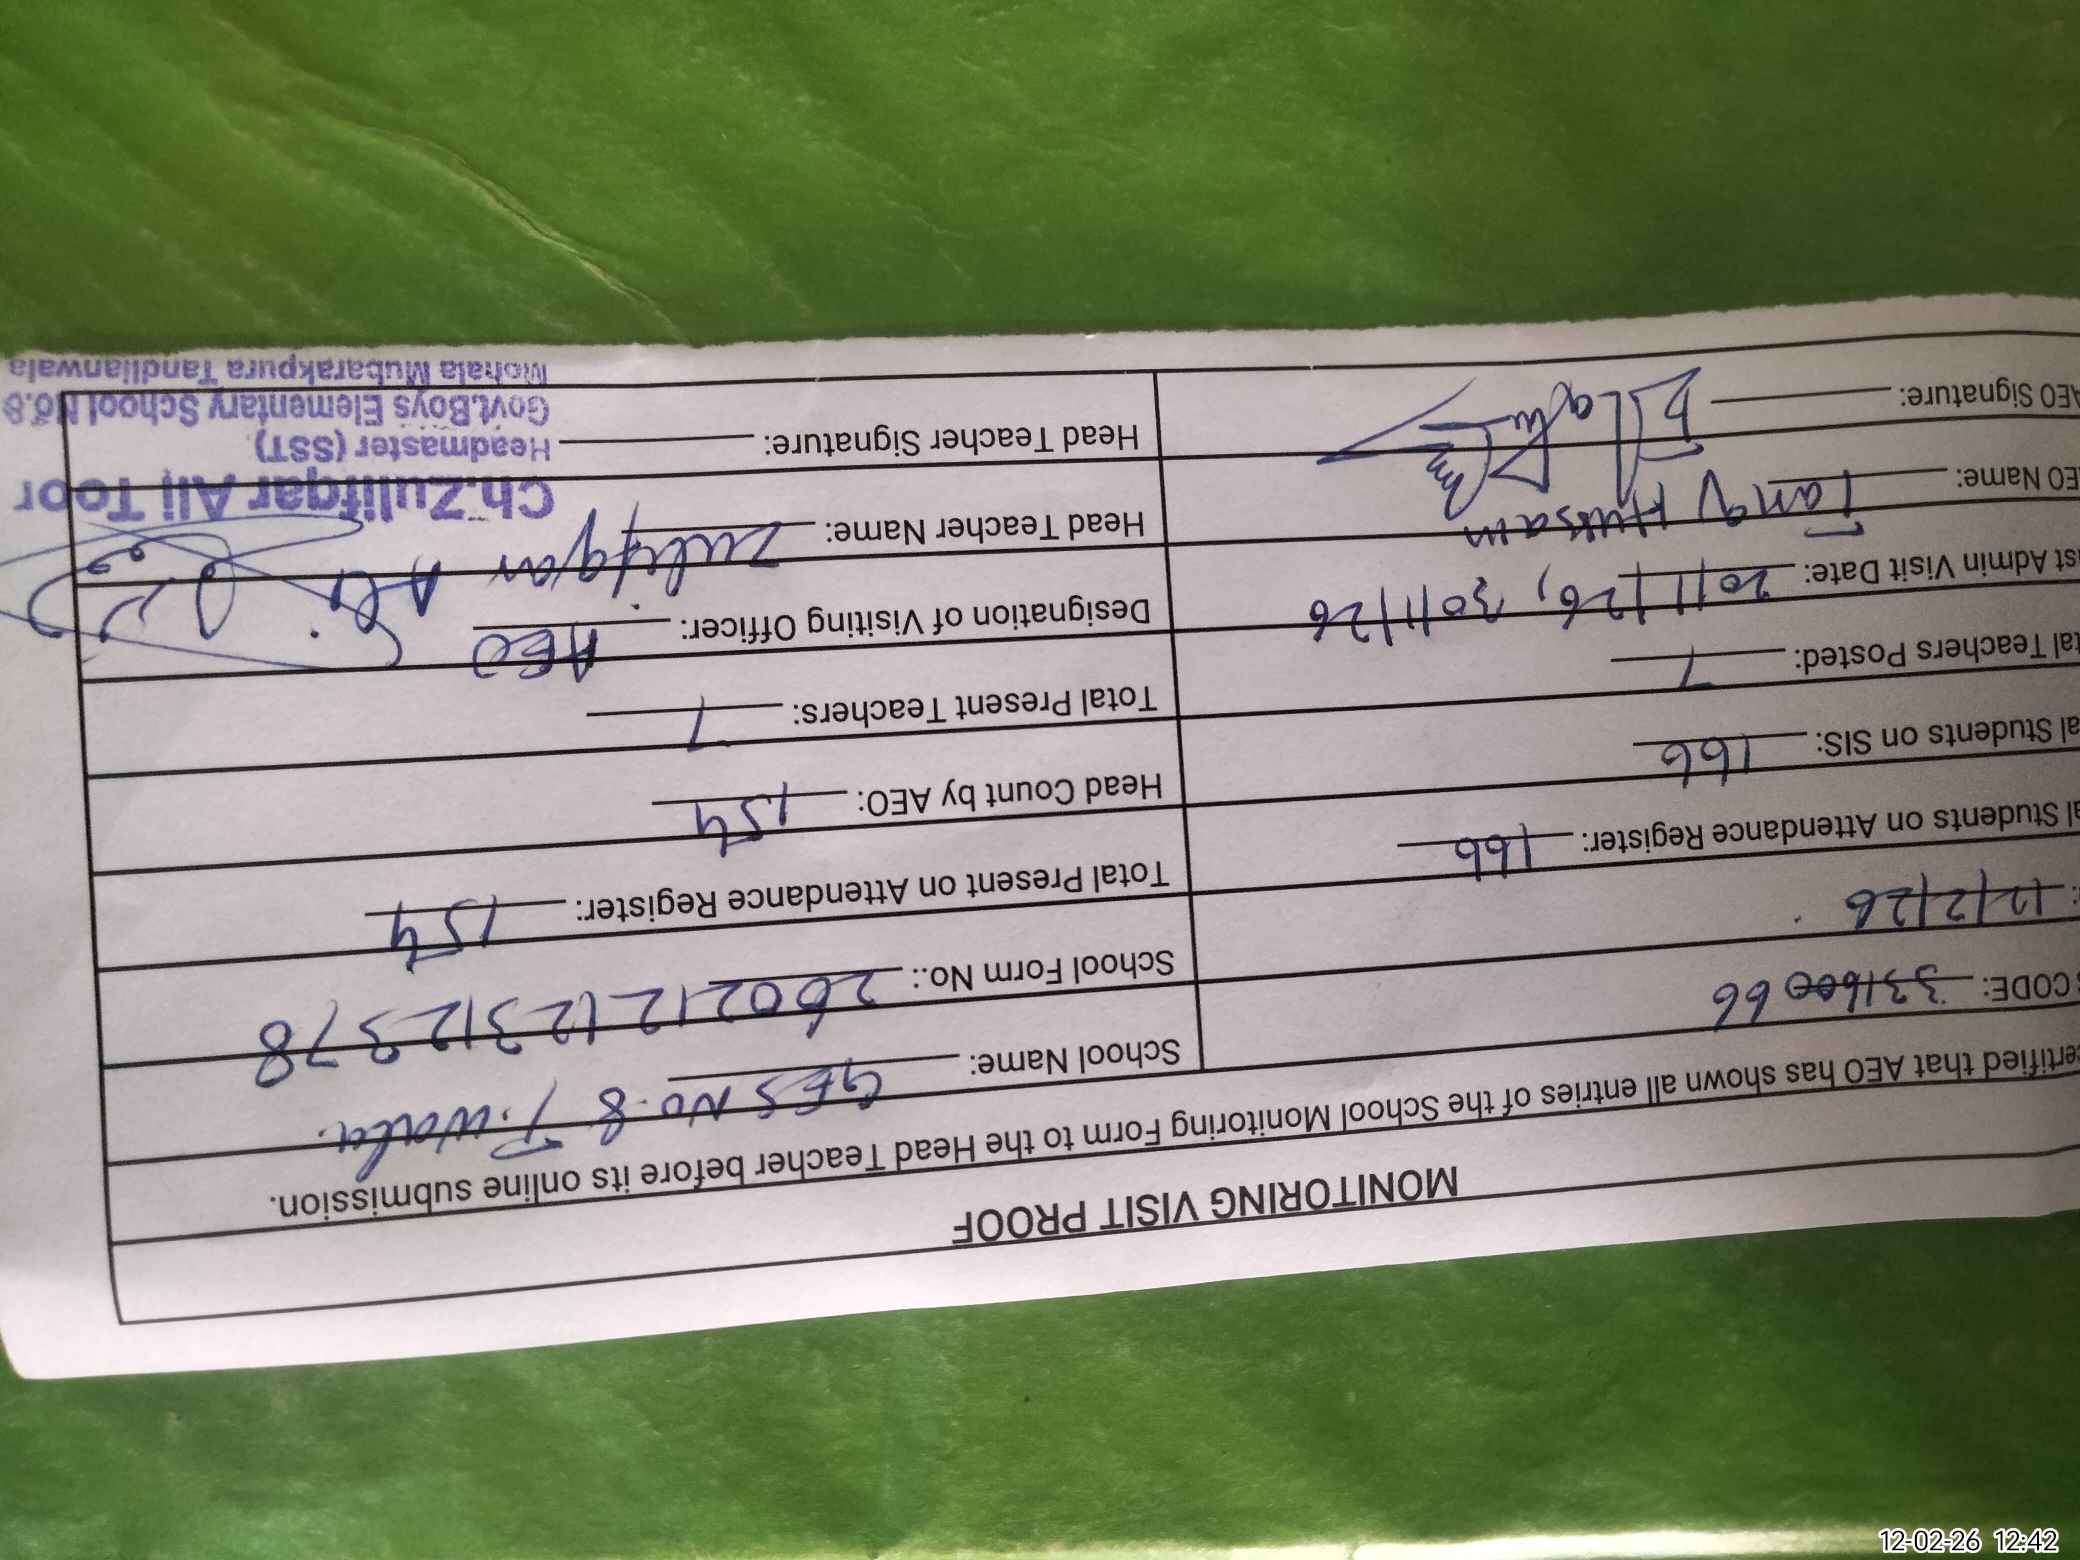 MONITORING VISIT PROOF
ertified that AEO has shown all entries of the School Monitoring Form to the Head Teacher before its online submission.
CODE: 33160066 School Name: GES No. 8 T.wala.
: 12/2/26 School Form No.: 26021212312378
al Students on Attendance Register: 166 Total Present on Attendance Register: 154
al Students on SIS: 166 Head Count by AEO: 154
tal Teachers Posted: 7 Total Present Teachers: 7
st Admin Visit Date: 20/1/26, 30/1/26 Designation of Visiting Officer: AEO
EO Name: Tariq Hussain Head Teacher Name: Zulifqar Ali
AEO Signature: Head Teacher Signature:
Ch.Zulifqar Ali Toor
Headmaster (SST)
Govt.Boys Elementary School No.8
Mohala Mubarakpura Tandlianwala
12-02-26 12:42